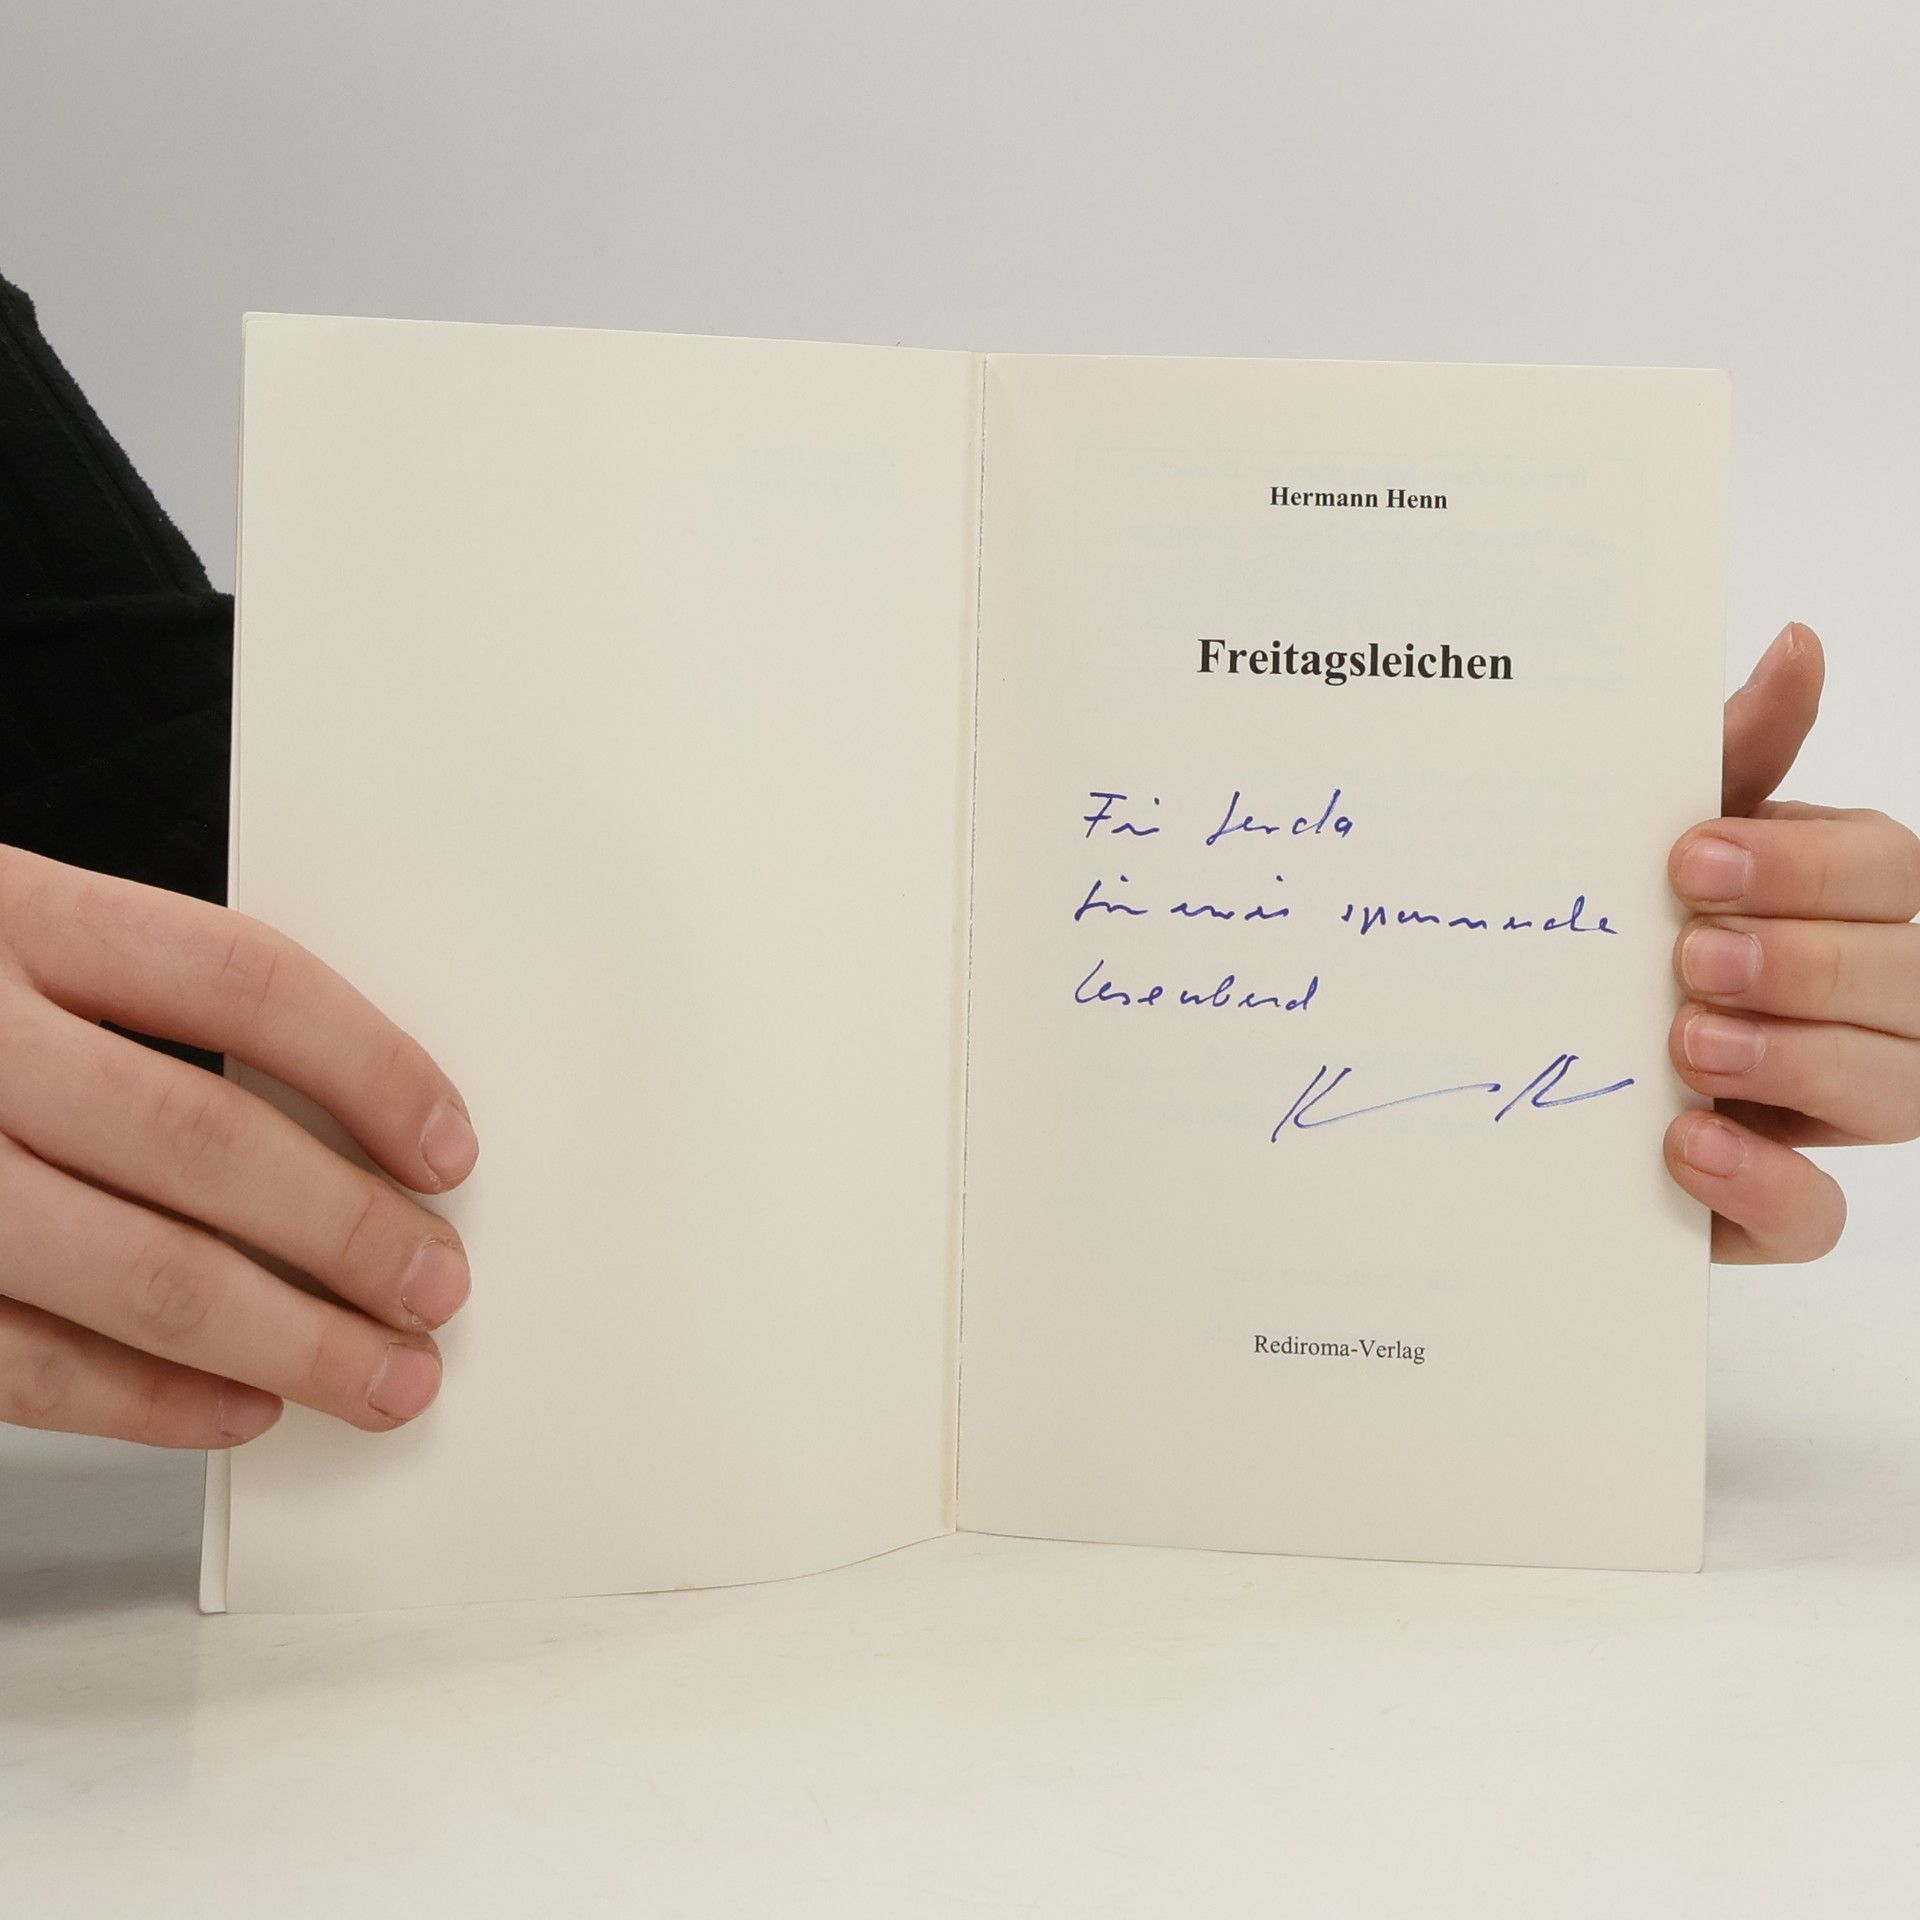 Hermann Henn
Freitagsleichen
Für Gerda
für einen spannende
Leseabend
Rediroma-Verlag